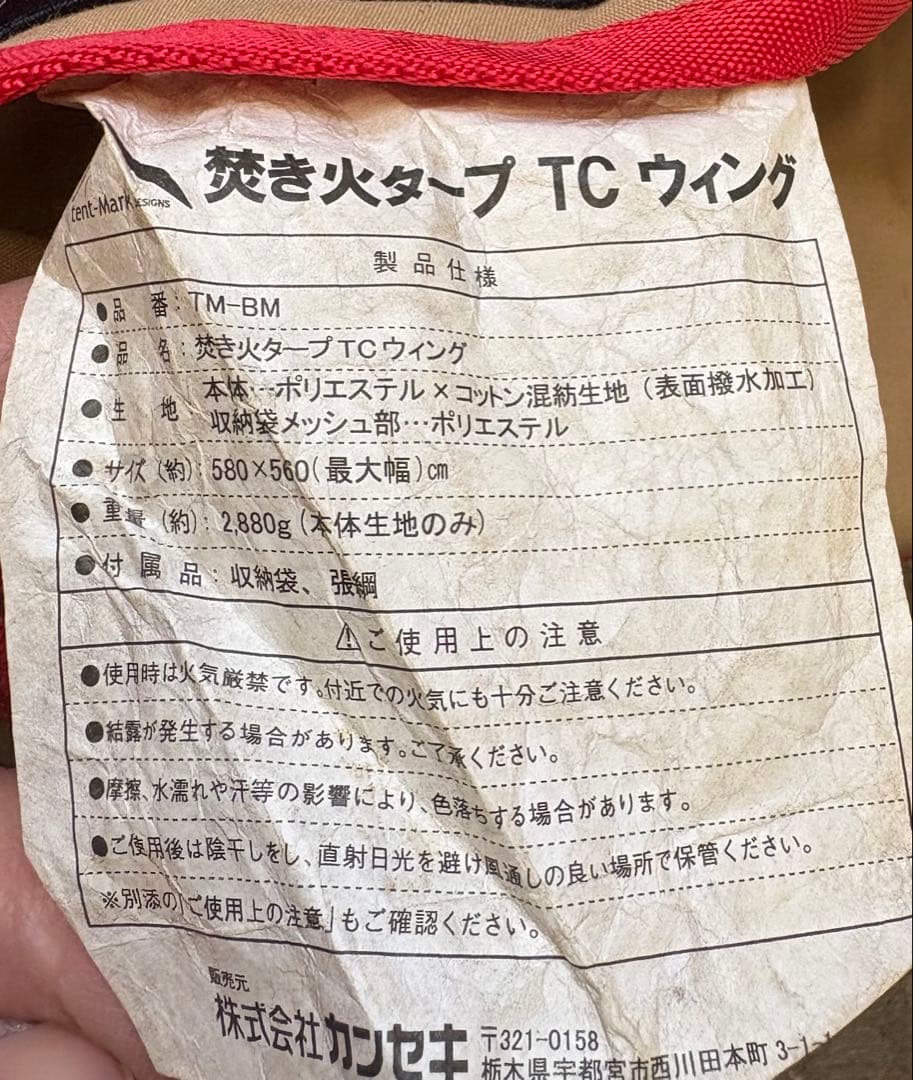 tent-Mark DESIGNS
焚き火タープ TC ウィング
製品仕様
●品 番：TM-BM
●品 名：焚き火タープTCウィング
●生 地 本体…ポリエステル×コットン混紡生地（表面撥水加工）
収納袋メッシュ部…ポリエステル
●サイズ（約）：580×560（最大幅）cm
●重量（約）：2,880g（本体生地のみ）
●付属品：収納袋、張綱
⚠ご使用上の注意
●使用時は火気厳禁です。付近での火気にも十分ご注意ください。
●結露が発生する場合があります。ご了承ください。
●摩擦、水濡れや汗等の影響により、色落ちする場合があります。
●ご使用後は陰干しをし、直射日光を避け風通しの良い場所で保管ください。
※別添の「ご使用上の注意」もご確認ください。
販売元
株式会社カンセキ 〒321-0158
栃木県宇都宮市西川田本町 3-1-